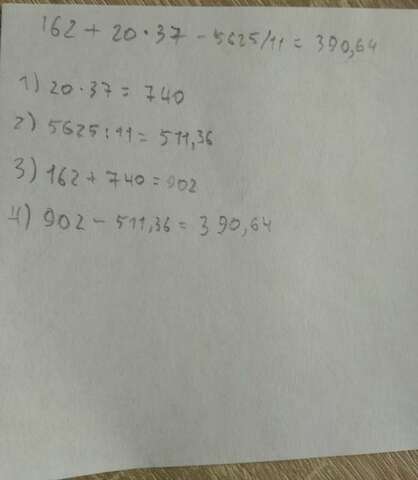 162 + 20 · 37 - 5625/11 = 390,64
1) 20 · 37 = 740
2) 5625 : 11 = 511,36
3) 162 + 740 = 902
4) 902 - 511,36 = 390,64